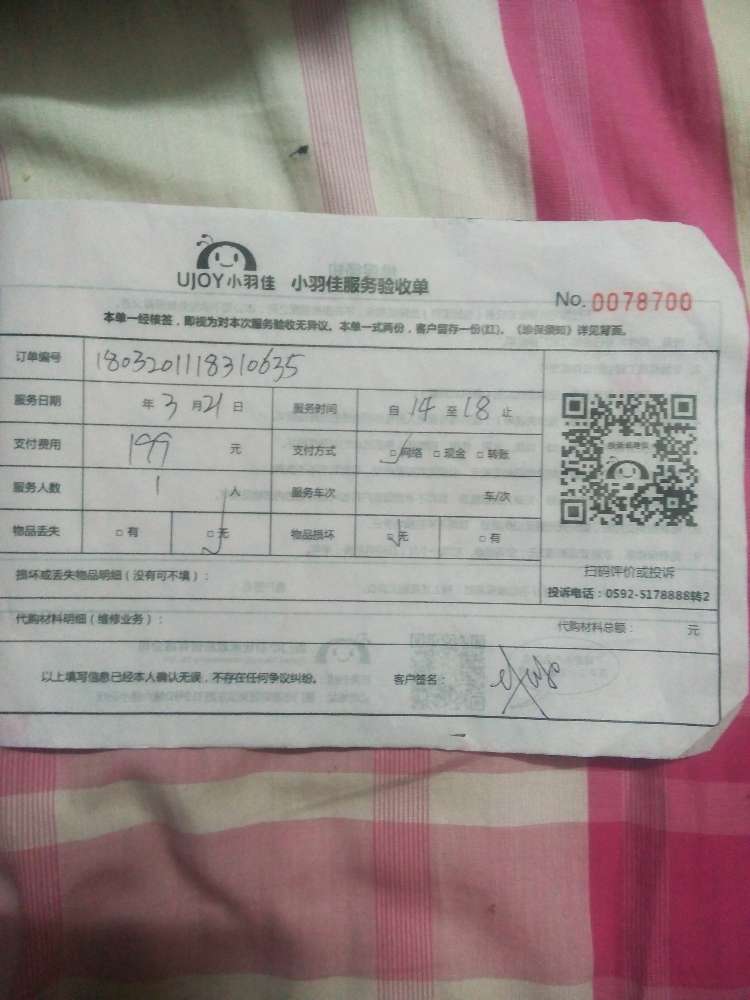 UJOY小羽佳 小羽佳服务验收单
No. 0078700
本单一经核签，即视为对本次服务验收无异议。本单一式两份，客户留存一份(红)。《珍保须知》详见背面。
订单编号 1803201118310635
服务日期 年 3 月 21 日 服务时间 自 14 至 18 止
支付费用 199 元 支付方式 □ 网络 □ 现金 □ 转账
服务人数 1 人 服务车次 车/次
物品丢失 □ 有 □ 无 物品损坏 □ 无 □ 有
扫码评价或投诉
投诉电话：0592-5178888转2
损坏或丢失物品明细（没有可不填）：
代购材料明细（维修业务）： 代购材料总额： 元
以上填写信息已经本人确认无误，不存在任何争议纠纷。 客户签名：